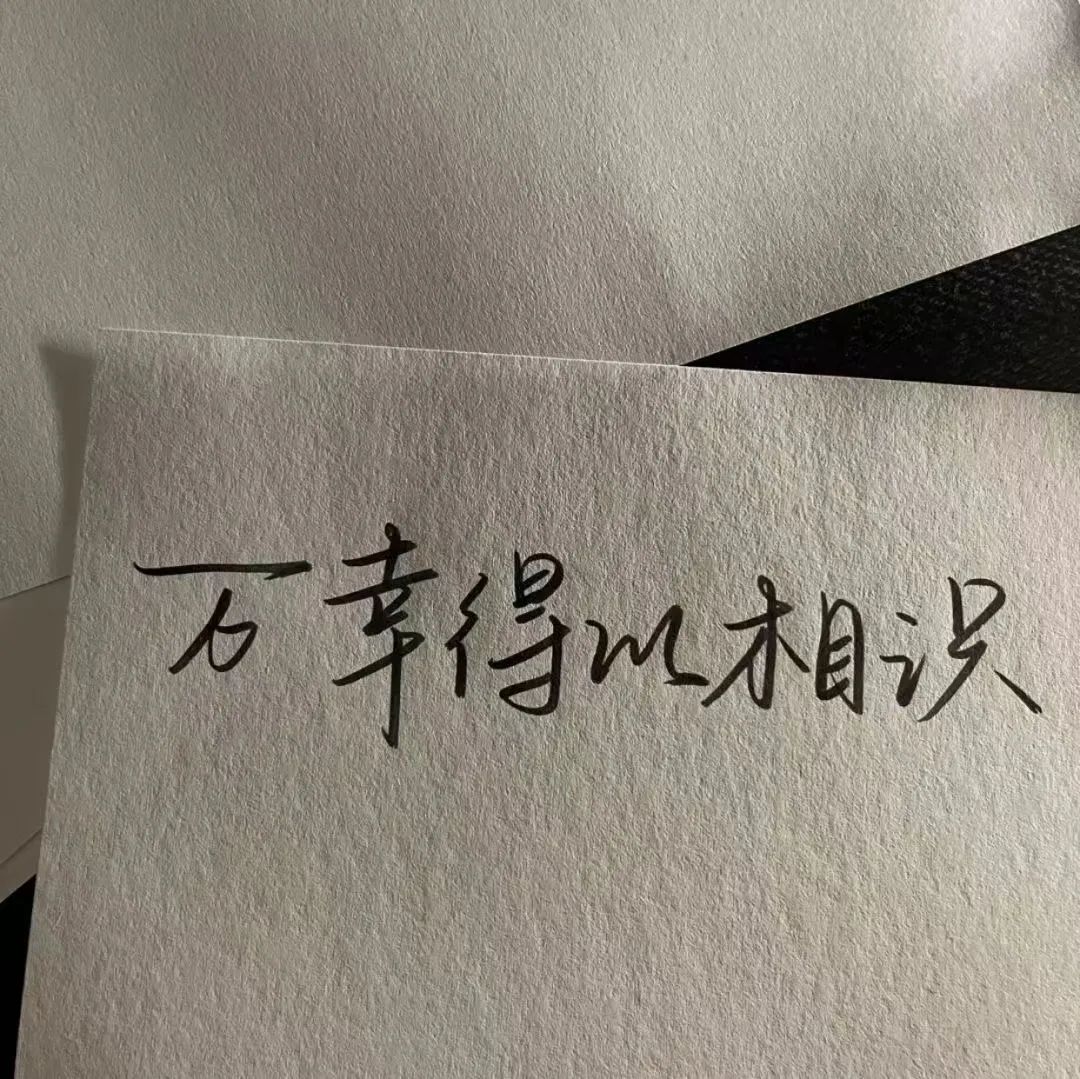 万幸得以相识